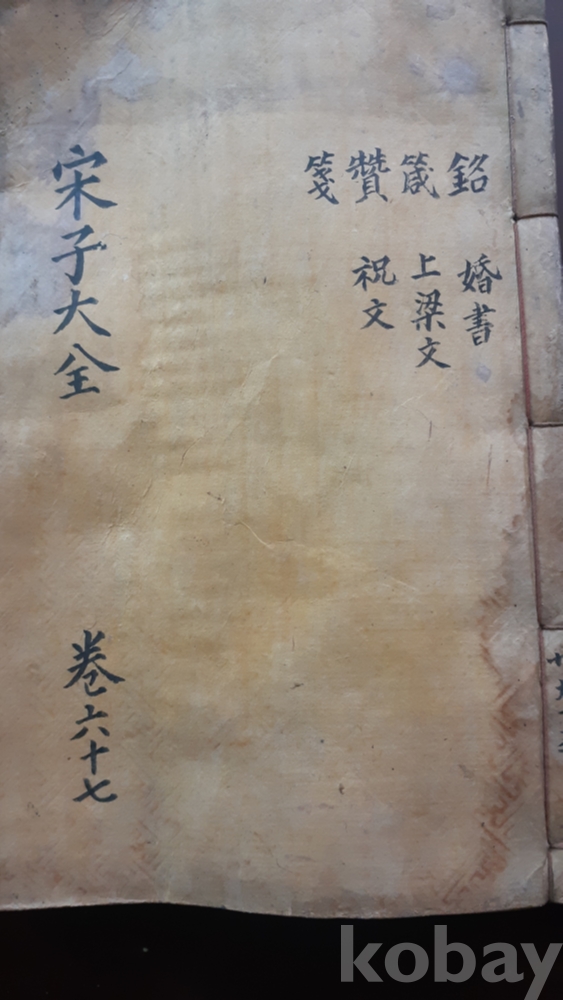 銘 婚書
箴 上梁文
贊 祝文
箋
宋子大全 卷六十七
kobay